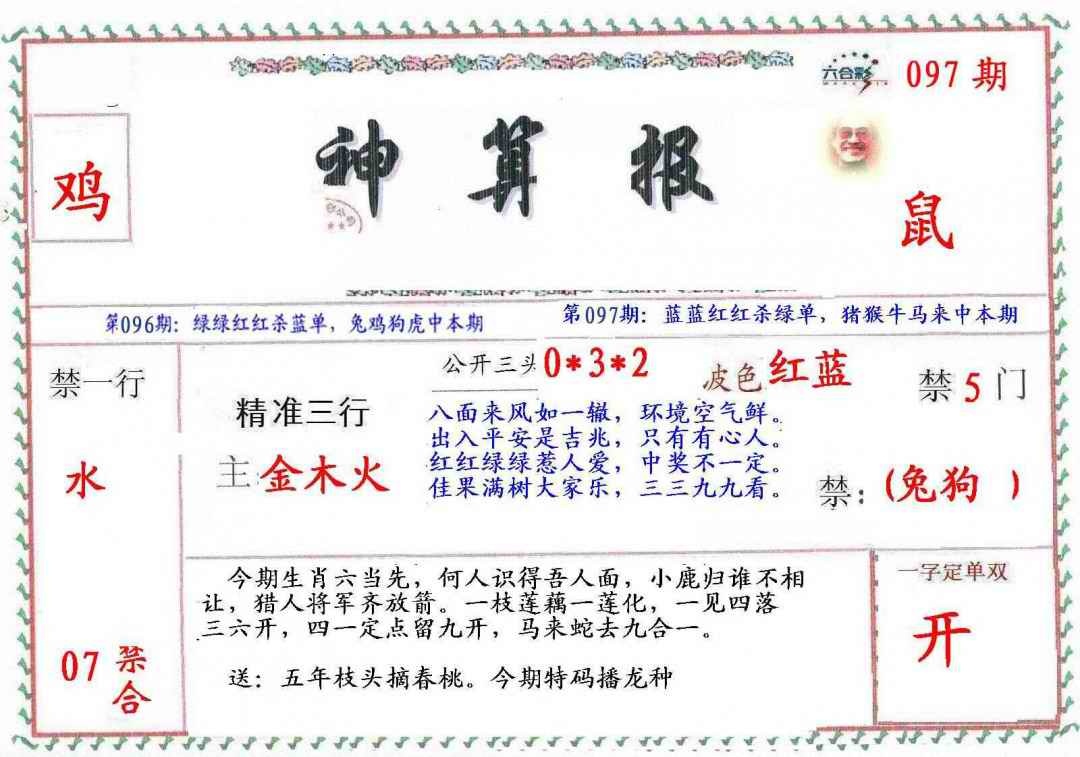 六合彩
097期
鸡
神算报
鼠
第096期：绿绿红红杀蓝单，兔鸡狗虎中本期
第097期：蓝蓝红红杀绿单，猪猴牛马来中本期
禁一行
水
07禁合
精准三行
主:金木火
公开三头0*3*2
波色红蓝
八面来风如一辙，环境空气鲜。
出入平安是吉兆，只有有心人。
红红绿绿惹人爱，中奖不一定。
佳果满树大家乐，三三九九看。
禁5门
禁：(兔狗 )
今期生肖六当先，何人识得吾人面，小鹿归谁不相
让，猎人将军齐放箭。一枝莲藕一莲化，一见四落
三六开，四一定点留九开，马来蛇去九合一。
送：五年枝头摘春桃。今期特码播龙种
一字定单双
开